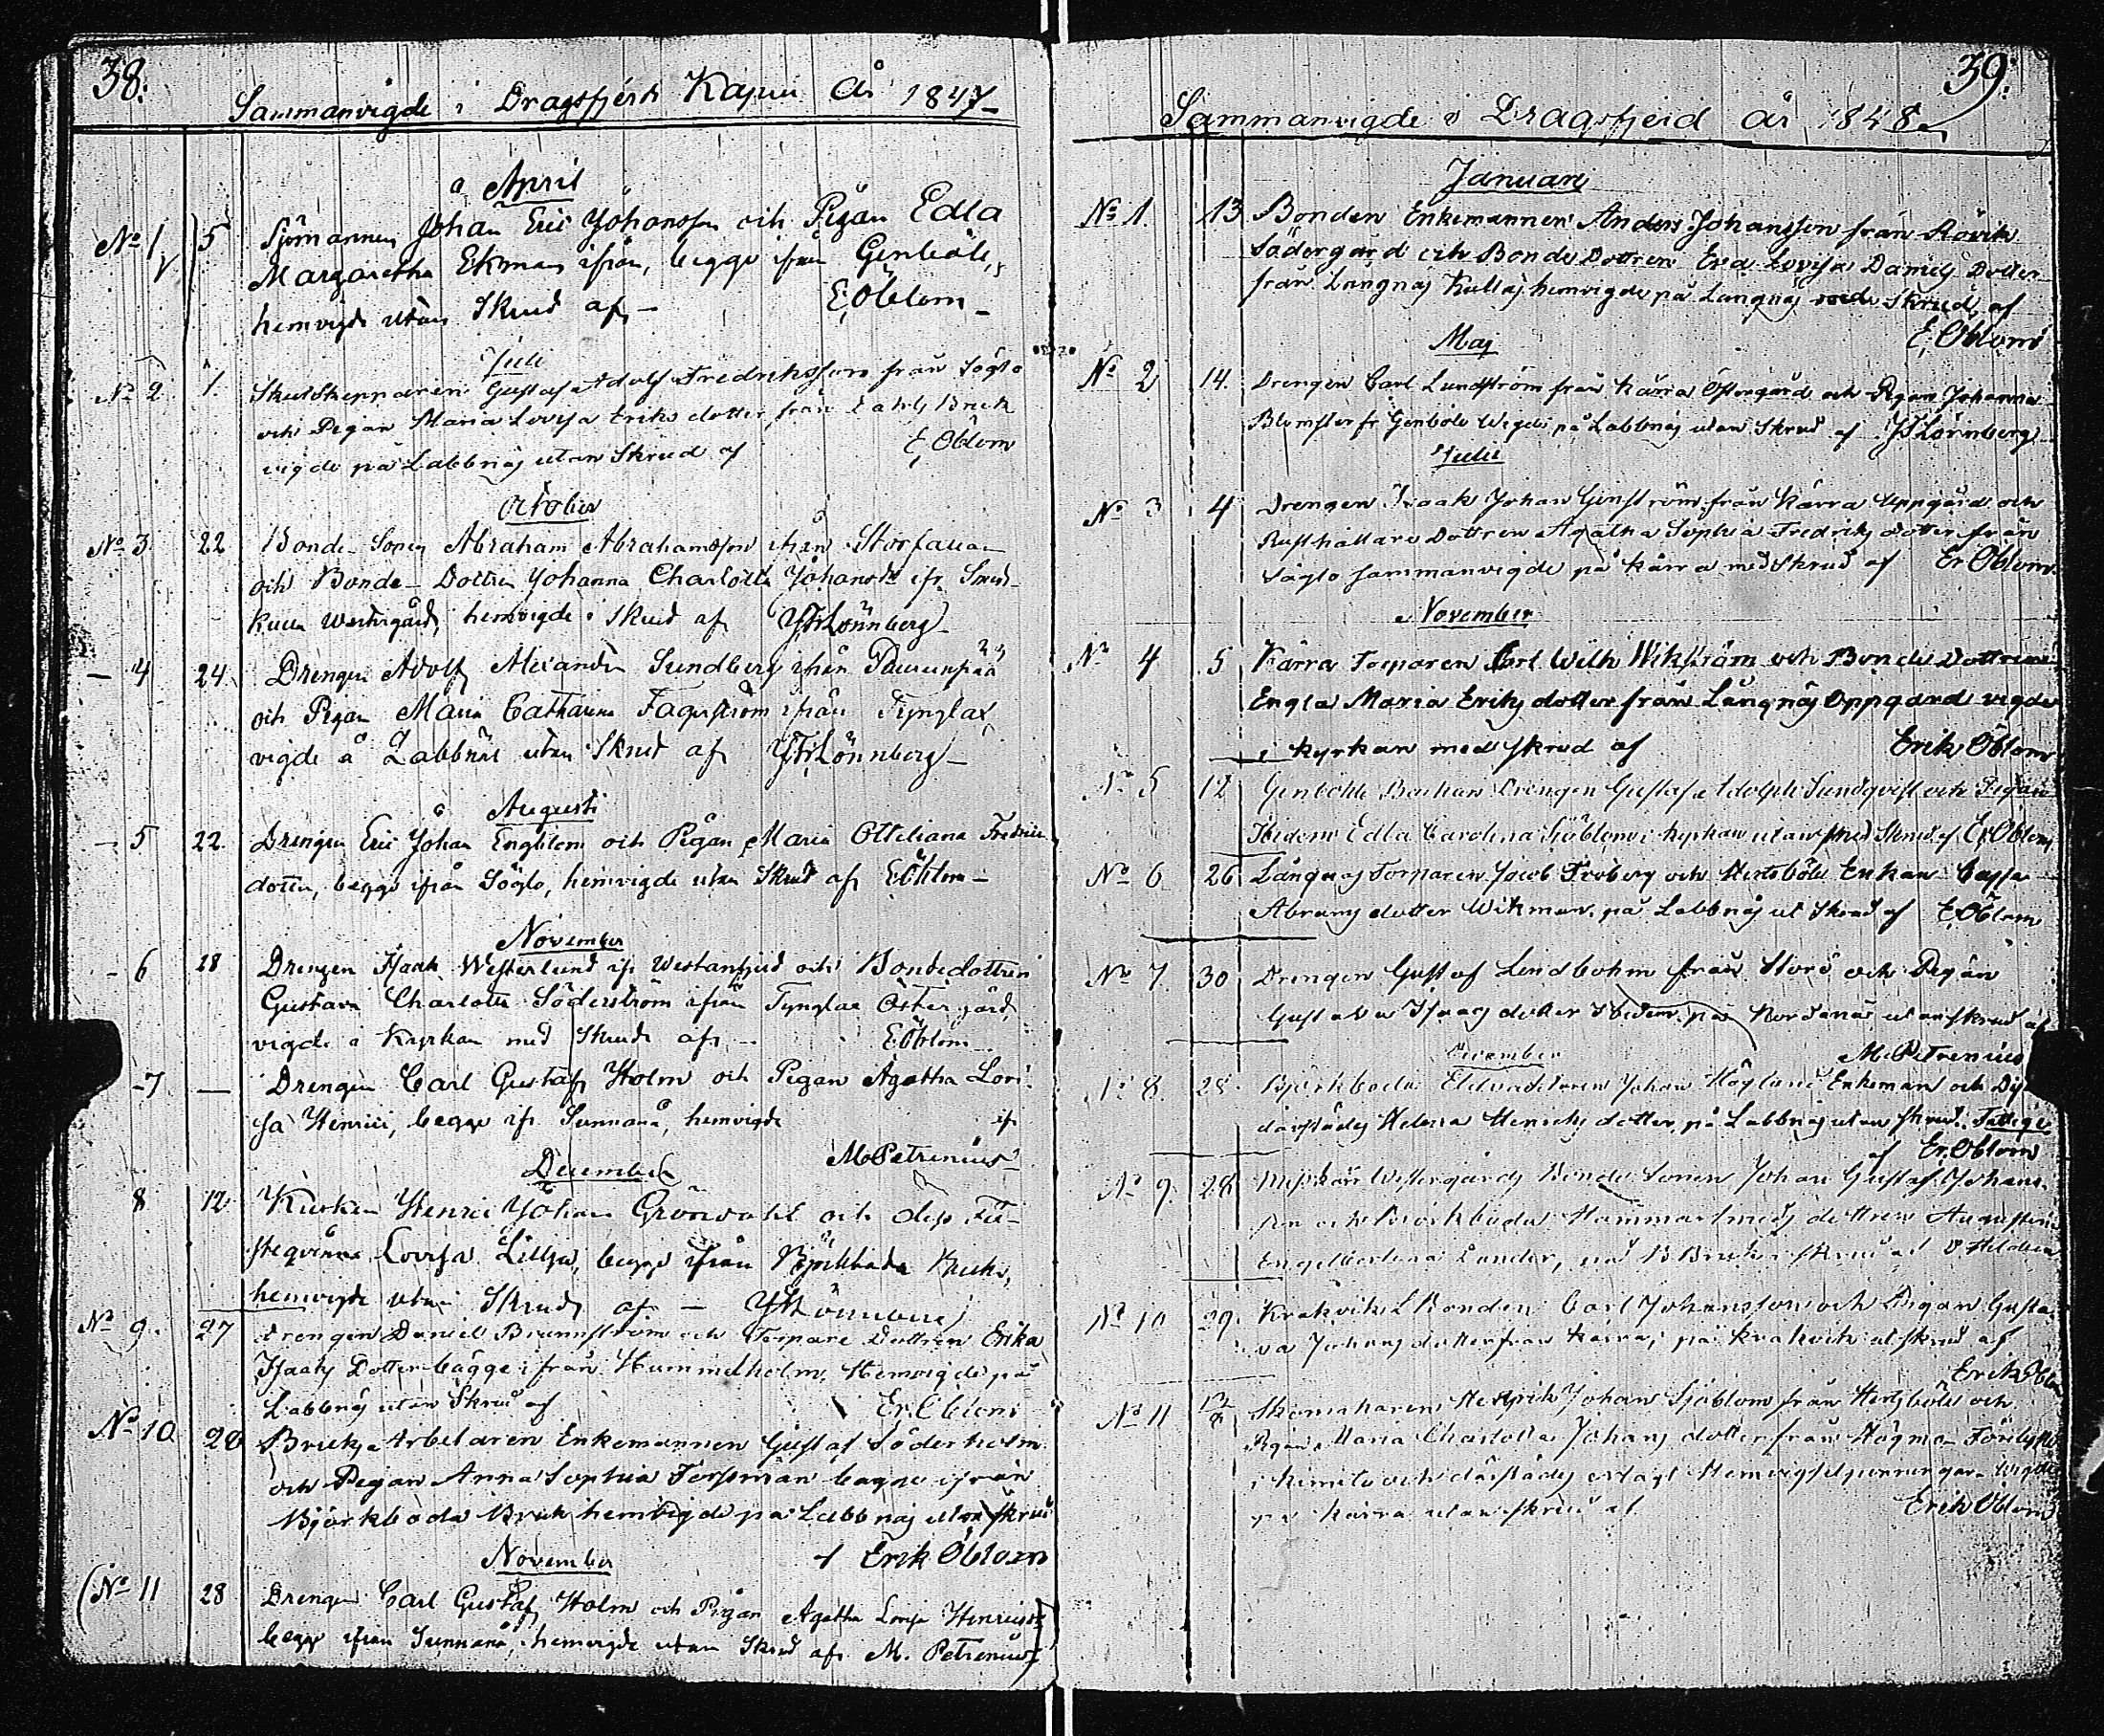 38.
Sammanvigde i Dragsfjerds Kapell År 1847
å April
No 1 5 Sjömannen Johan Eric Johansson och Pigan Edla
Margaretha Ekman ifrån, begge ifrån Genböle,
hemvigde utan Skrud af – E. Öblom –
Juli
No 2 1. Skutskepparen Gustaf Adolf Fredriksson från Söglo
och Pigan Maria Lovisa Eriks dotter från Dahls Bruk
vigde på Labbnäs utan Skrud af E. Öblom
October
No 3 22 Bonde-Sonen Abraham Abrahamsson ifrån
och Bonde-Dottren Johanna Charlotta Johansdr ifr
Westergård, hemvigde i Skrud af Lönnberg
– 4 24 Drengen Adolf Alexander Sundberg ifrån
och Pigan Maria Catharina Fagerström ifrån Tynglax
vigde å Labbnäs utan Skrud af Lönnberg –
å Augusti
– 5 22 Drengen Eric Johan Engblom och Pigan Maria Ottiliana Fredrics
dotter, begge ifrån Söglo, hemvigde utan Skrud af E Öblom –
November
– 6 28 Drengen Isaak Westerlund ifr Westanfjerd och Bondedottren
Gustava Charlotta Söderström ifrån Tynglax Östergård,
vigde i Kyrkan med Skrud af – E Öblom
– 7 — Drengen Carl Gustaf Holm och Pigan Agatha Lovi-
sa Henrici, begge ifr Sunnanå, hemvigde af
M. Petrenius
December
8 12 Kusken Henric Johan Grönvahl och
Lovisa Lillja, begge ifrån Björkboda Bruk,
hemvigde utan Skrud af – Lönnberg
No 9. 27 Drengen Daniel Brunnström och Torpare Dottren Erika
Isaaks Dotter bägge ifrån Hummelholm, Hemvigde på
Labbnäs utan Skrud af Er. Öblom
No 10 28 Bruks Arbetaren Enkemannen Gustaf Söderholm
och Pigan Anna Sophia Forsman bägge ifrån
Björkboda Bruk hemvigde på Labbnäs utan skrud
af Erik Öblom
November
(No 11 28 Drengen Carl Gustaf Holm och Pigan Agatha Lovisa Henrics
begge ifrån Sunnanå, hemvigde utan Skrud af M. Petrenius)
39.
Sammanvigde i Dragsfjerd år 1848
Januari
No 1. 13 Bonden Enkemannen Anders Johansson från Rövik
Södergård och Bonde Dottren Eva Lovisa Daniels Dotter
från Långnäs Kullas, hemvigde på Långnäs med Skrud, af
E. Öblom
Maj
No 2 14. Drengen Carl Lundström från Kärra Östergård och Pigan Johanna
Blomster fr Genböle Wigde på Labbnäs utan Skrud af Lönnberg
Juli
No 3 4 Drengen Isaak Johan Ginström från Kärra Uppgård och
Rusthållare Dottren Agatha Sophia Fredriks dotter från
Söglo sammanvigde på Kärra med Skrud af Er Öblom
November
No 4 5 Kärra Torparen Carl Wilh Wikström och Bonde Dottren
Engla Maria Eriks dotter från Långnäs Oppgård vigde
i kyrkan med skrud af Erik Öblom
No 5 12 Genböle Drengen Gustaf Adolph Sundqvist och Pigan
Ibidem Edla Carolina Sjöblom i kyrkan utan Skrud af Er. Öblom
No 6 26 Långnäs Torparen Jacob Fröberg och Hertsböle Enkan Cajsa
Abrams dotter Wikman, på Labbnäs ut Skrud af E. Öblom
No 7. 30 Drengen Gustaf Lindbohm från Storö och Pigan
Gustava Isaacs dotter Ibidem, på Nordanå utan skrud af
M. Petrenius
December
No 8. 28. Björkboda Johan Höglund Enkeman och
därstädes Helena Henriks dotter, på Labbnäs utan skrud. Fattige
af Er. Öblom
No 9. 28 Westergårds Bonde Sonen Johan Gustaf Johans-
son och Björkboda Hammarsmeds dottren Augustina
Engelbertina Lander, på B Bruk i skrud af
No 10 29. Krakvik Bonden Carl Johansson och Pigan Gusta-
va Johans dotter från Kärra, på Krakvik ut skrud af
Erik Öblom
No 11 Skomakaren Henrik Johan Sjöblom från Hertsböle och
Pigan Maria Charlotta Johans dotter från Högmo
i Kimito och därstädes erlagt Hemvigselpenningar. Vigde
på Kärra utan skrud af Erik Öblom